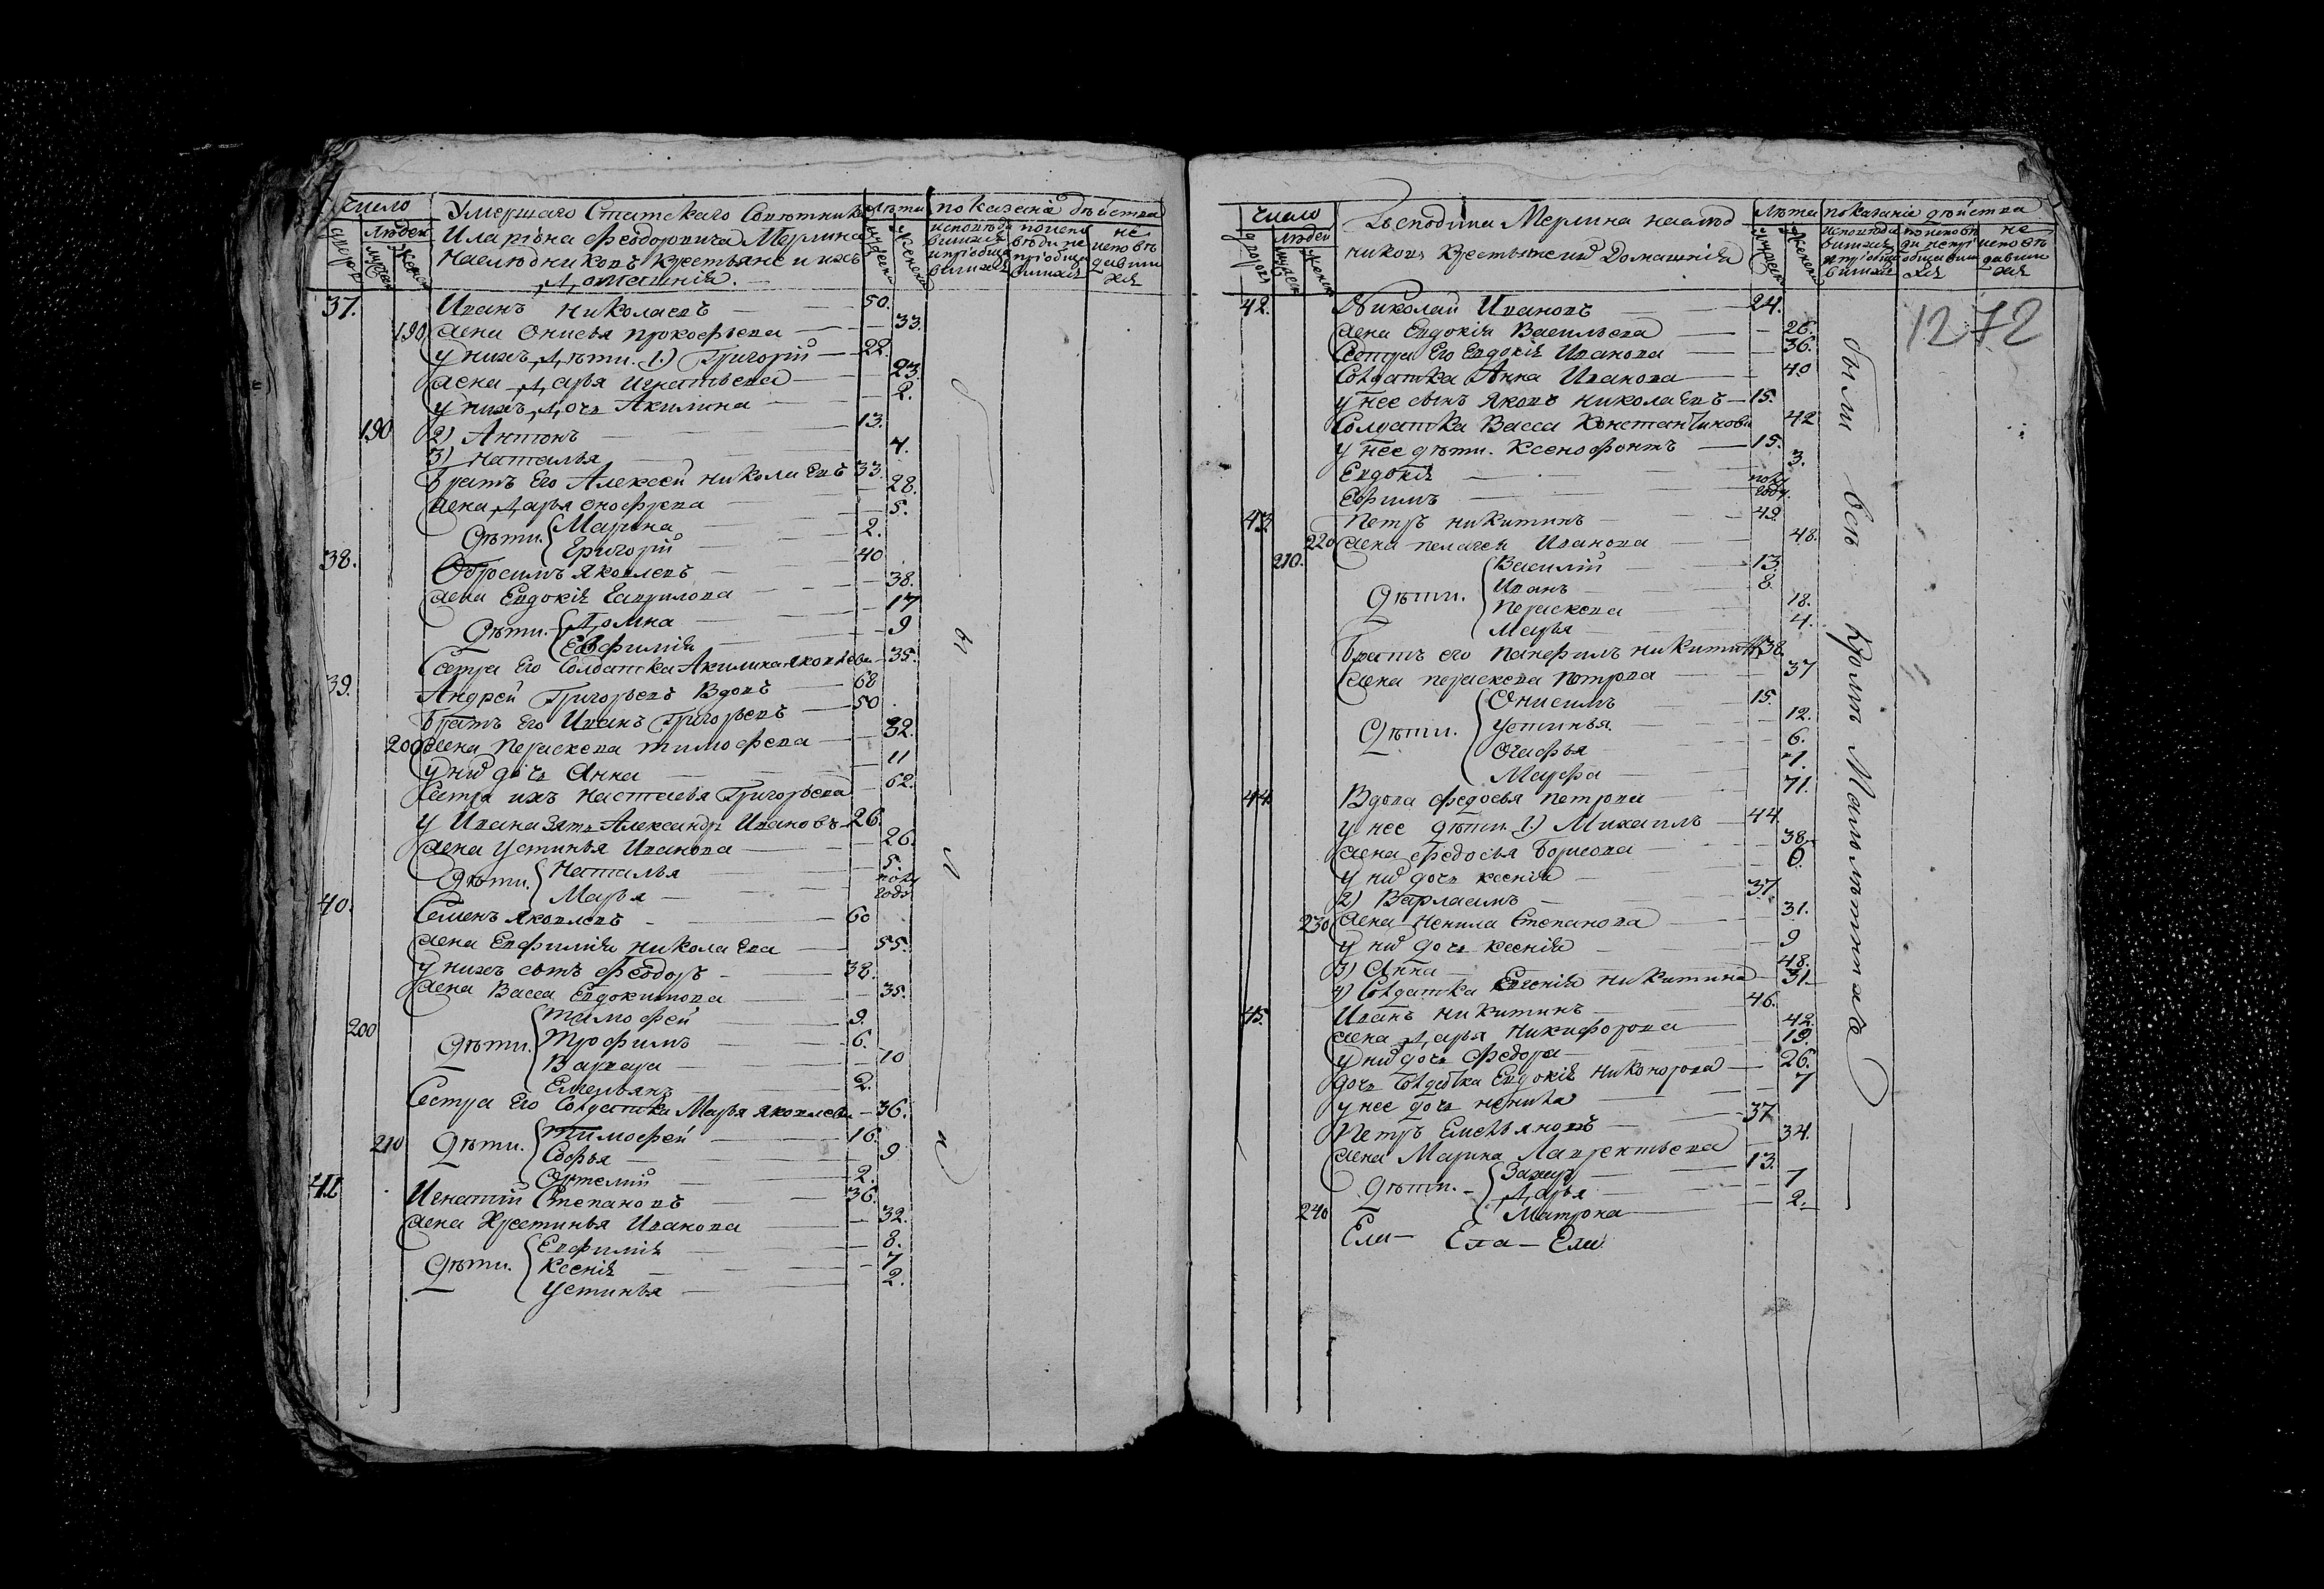 число
людей
дворов
мужеск
женск
Умершаго Статскаго Советника
Илариона Феодоровича Мерлина
наследниковъ крестьяне и ихъ
домашнія.
лѣта
мужеска
женска
показаніе дѣйства
37. Иванъ Николаевъ 50.
190 жена Онисья Прокофьева 33.
у нихъ дѣти. 1.) Григорій 22.
жена Дарья Игнатьева 23
у нихъ дочь Акилина 2.
190 2) Антонъ 13.
3) Наталья 4.
братъ Его Алексей Николаевъ 33.
жена Дарья Онофрева 28.
дѣти. Марина 5.
Григорій 2.
38. Обросимъ Яковлевъ 40
жена Евдокія Гаврилова 38.
дѣти. Домна 17
Евфимія 9
Сестра Его Солдатка Акилина Яковлева 35.
39. Андрей Григорьевъ Вдовъ 68
братъ Его Иванъ Григорьевъ 50
200 жена Параскева Тимофева 32.
у них дочь Анна 11
Сестра ихъ Настасья Григорьева 62.
у Ивана зять Александръ Ивановъ 26.
жена Устинья Иванова 26.
дѣти. Наталья 5.
Марья полугода
40. Семенъ Яковлевъ 60
жена Евфимія Николаева 55.
у нихъ сынъ Феодоръ 38.
жена Васса Евдокимова 35.
200 дѣти. Тимофей 9.
Трофимъ 6.
Варвара 10
Емельянъ 2.
Сестра Его Солдатка Марья Яковлева 36.
210 дѣти. Тимофей 16.
Софья 9
Ортемій 2.
41. Игнатій Степановъ 36.
жена Хрестинья Иванова 32.
дѣти. Евфимія 8.
Ксенія 7
Устинья 2.
число
людей
дворовъ
Господина Мерлина наслѣд
никовъ Крестьяне и Домашнія
лѣта
показаніе дѣйства
1272
42. Николай Ивановъ 24.
жена Евдокія Васильева 26.
Сестра Его Евдокія Иванова 36.
Солдатка Анна Иванова 40
у нее сынъ Яковъ Николаевъ 15.
Солдатка Васса Константинова 42
у нее дѣти. Ксенофонтъ 15.
Евдокія 3.
Ефимъ полугоду.
43. Петръ Никитинъ 49.
220 жена Пелагея Иванова 48.
210. дѣти. Василій 13
Иванъ 8.
Параскева 18.
Марья 4.
братъ его Панфилъ Никитинъ 38.
жена Параскева Петрова 37
дѣти. Онисимъ 15.
Устинья 12.
Агафья 6.
Марфа 1.
44 Вдова Федосья Петрова 71.
у нее дѣти. 1.) Михаилъ 44.
жена Федосья Борисова 38.
у них дочь Ксенія 6.
2) Варлаамъ 37.
230 жена Ненила Степанова 31.
у них дочь Ксенія 9
3) Анна 48.
4) Солдатка Евгенія Никитина 31
45. Иванъ Никитинъ 46.
жена Дарья Никифорова 42.
у них дочь Федора 19.
дочь Солдатка Евдокія Никонорова 26.
у нее дочь Ненила 7
Петръ Емельяновъ 37
жена Марина Лаврентьева 34.
дѣти. Захаръ 13.
Дарья 7
240 Матрона 2.
были всѣ кромѣ Малолѣтнихъ